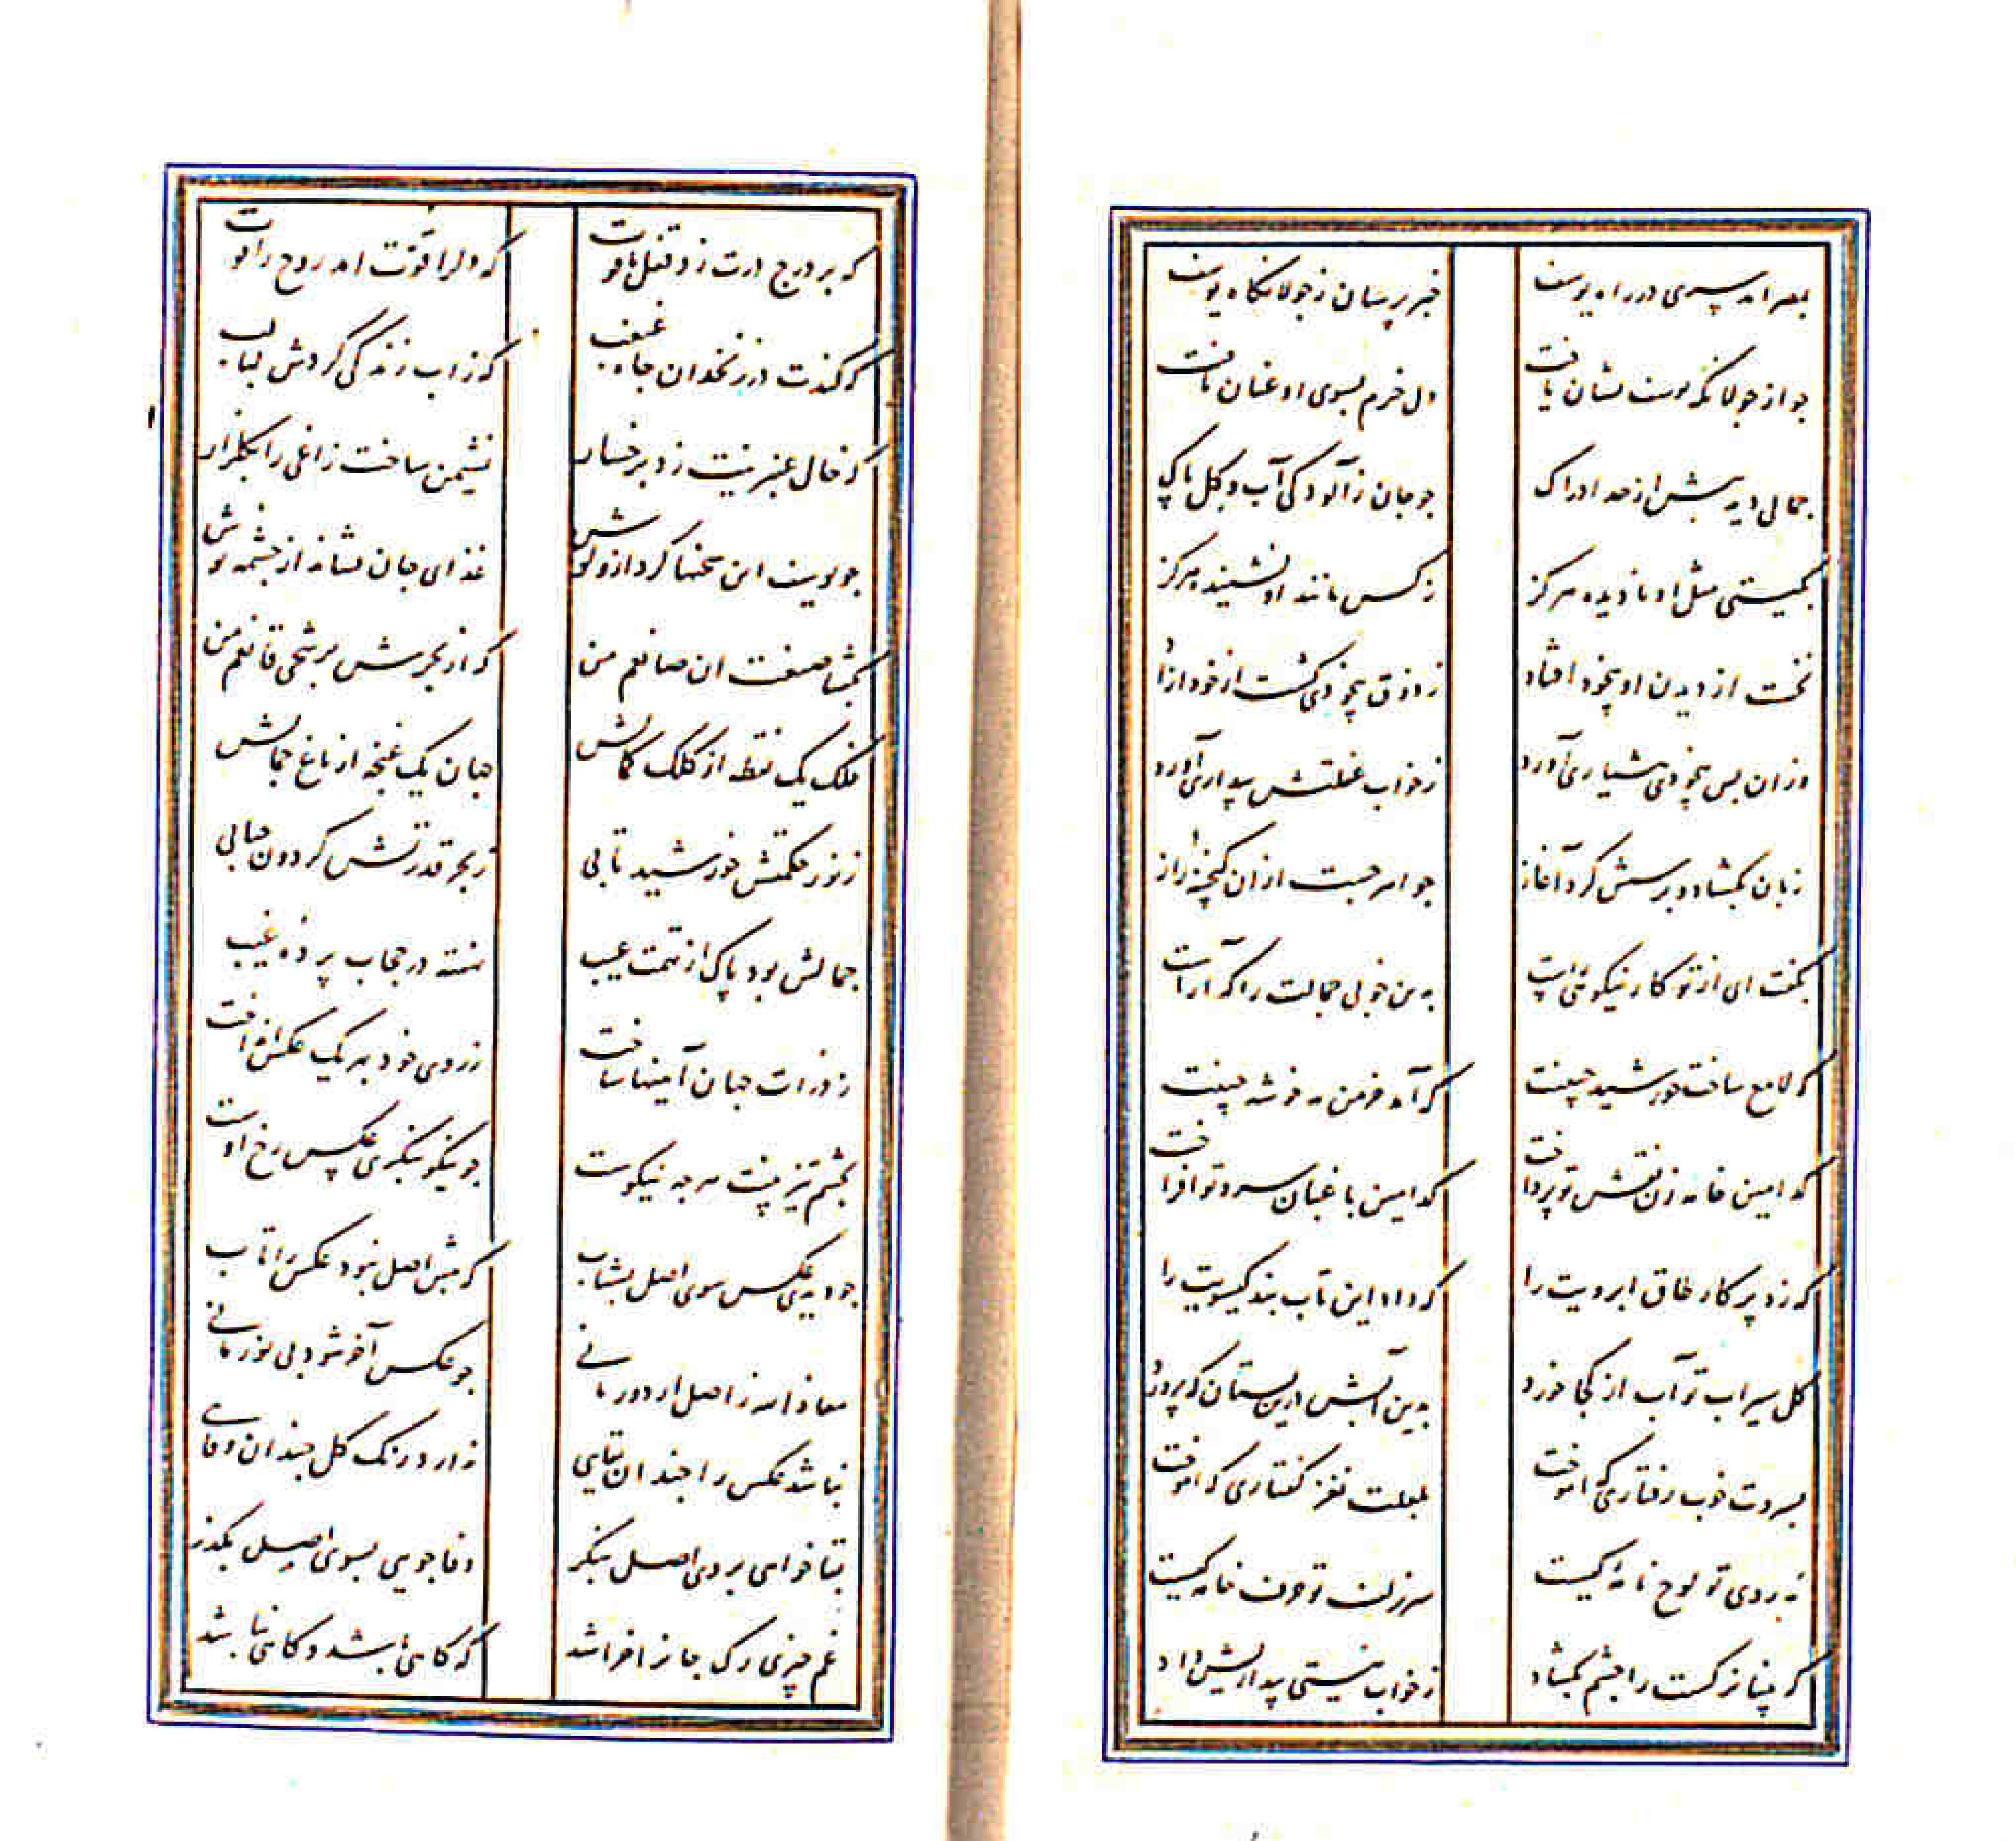 بمصر آمد پسری در راه یوسف خبر پرسان ز جولانگاه یوسف
جو از جولانکه یوسف نشان یافت دل خرم بسوی او عنان تافت
جمالی دید بیش از حد ادراک جو جان ز آلودکی آب و کل پاک
بکیتی مثل او نادیده هرکز ز کس مانند او نشنیده هرکز
نخست از دیدن او بیخود افتاد ز ذوق بیخودی کشت از خود آزاد
وزان پس بیخودی هشیاری آورد ز خواب غفلتش بیداری آورد
زبان بکشاد و پرسش کرد آغاز جواهر جست از ان کنجینهٔ راز
بکفت ای از تو کار نیکوئی راست بدین خوبی جمالت را که آراست
که لامع ساخت خورشید جبینت که آمد خرمن مه خوشه چینت
کدامین خامه زن نقش تو پرداخت کدامین باغبان سرو تو افراخت
که زد پرکار طاق ابرویت را که داد این تاب بند کیسویت را
کل سیراب تو آب از کجا خورد بدین آبش درین بستان که پرورد
بسروت خوب رفتاری که آموخت بلعلت نغز کفتاری که آموخت
مه روی تو لوح نامهٔ کیست سر زلف تو حرف خامهٔ کیست
که بینا نرکست را چشم بکشاد ز خواب نیستی بیداریش داد
که بر درج درت زد قفل یاقوت که دلرا قوت آمد روح را قوت
که کندت در زنخدان جاه غبغب که ز آب زندکی کردش لبالب
که خال عنبرینت زد برخسار نشیمن ساخت زاغی را بکلزار
جو یوسف این سخنها کرد ازو کوش غذای جان فشاند از جشمه نوش
بکفتا صنعت آن صانعم من که از بحرش برشحی قانعم من
فلک یک نقطه از کلک کمالش جهان یک غنچه از باغ جمالش
ز نور حکمتش خورشید تابی ز بحر قدرتش کردون حبابی
جمالش بود پاک از تهمت عیب نهفته در حجاب پردهٔ غیب
ز ذرات جهان آیینها ساخت ز روی خود بهر یک عکس انداخت
بچشم تیز بینت هر جه نیکوست جو نیکو بنکری عکس رخ اوست
جو دیدی عکس سوی اصل بشتاب که پیش اصل نبود عکس را تاب
معاذ الله ز اصل ار دور مانی جو عکس آخر شود بی نور مانی
نباشد عکس را جندان بقایی ندارد رنک کل جندان وفایی
بقا خواهی بروی اصل بنکر وفا جویی بسوی اصل بکذر
غم چیزی رک جانرا خراشد که کاهی باشد و کاهی نباشد